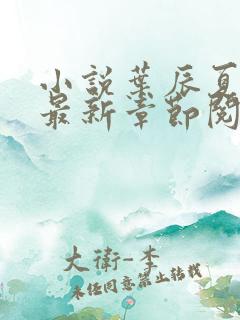 小說葉辰夏
最新章節閱
大衛-李
未经同意禁止转载